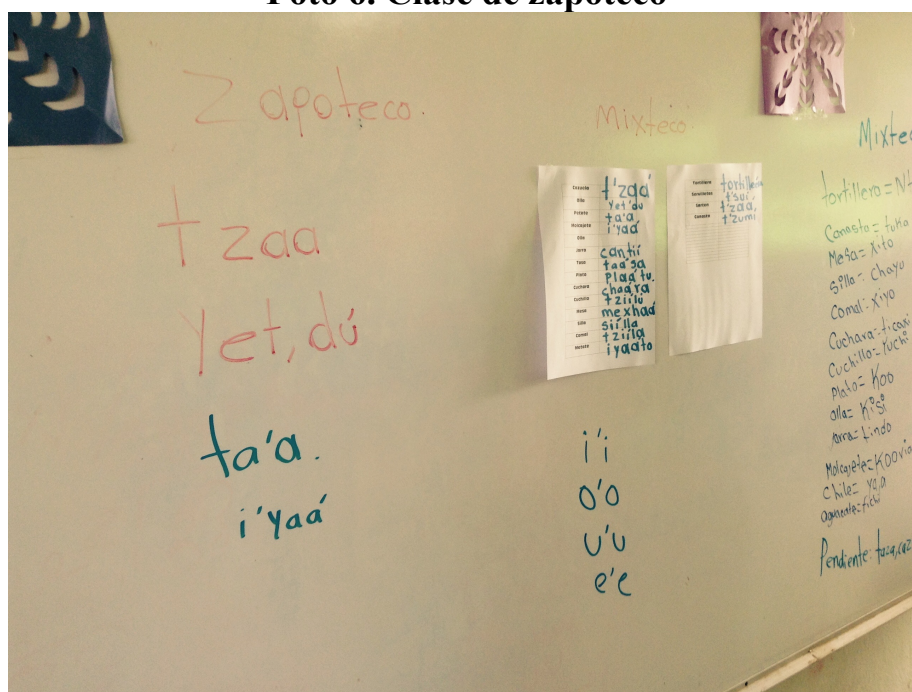 Foto 6. Clase de zapoteco
Zapoteco.
tzaa
Yet,dú
ta'a.
i'yaá
Mixteco
Canasta t'zaá
Olla Yet'dú
Metate ta'a
Molcajete i'yaá
Olla
Jarra cantíi
Taza taása
Plato Plaátu.
Cuchara chaára
Cuchillo tziílu
Mesa mexhaá
Silla siílla
Comal tziíla
Metate iyaáto
Tortillero
Servilletas t'suí,
t'zaa,
Canasta t'zumi
i'i
o'o
u'u
e'e
Mixtec
tortillero=
Canasta=
Mesa= Xito
Silla= Chayu
Comal= Xiyo
Cuchara= ticaxi
Cuchillo= Yuchi
Plato= Koo
olla= Kisi
Jarra= tindo
Molcajete=
Chile= Ya,a
aguacate= tichi
Pendiente: taza,